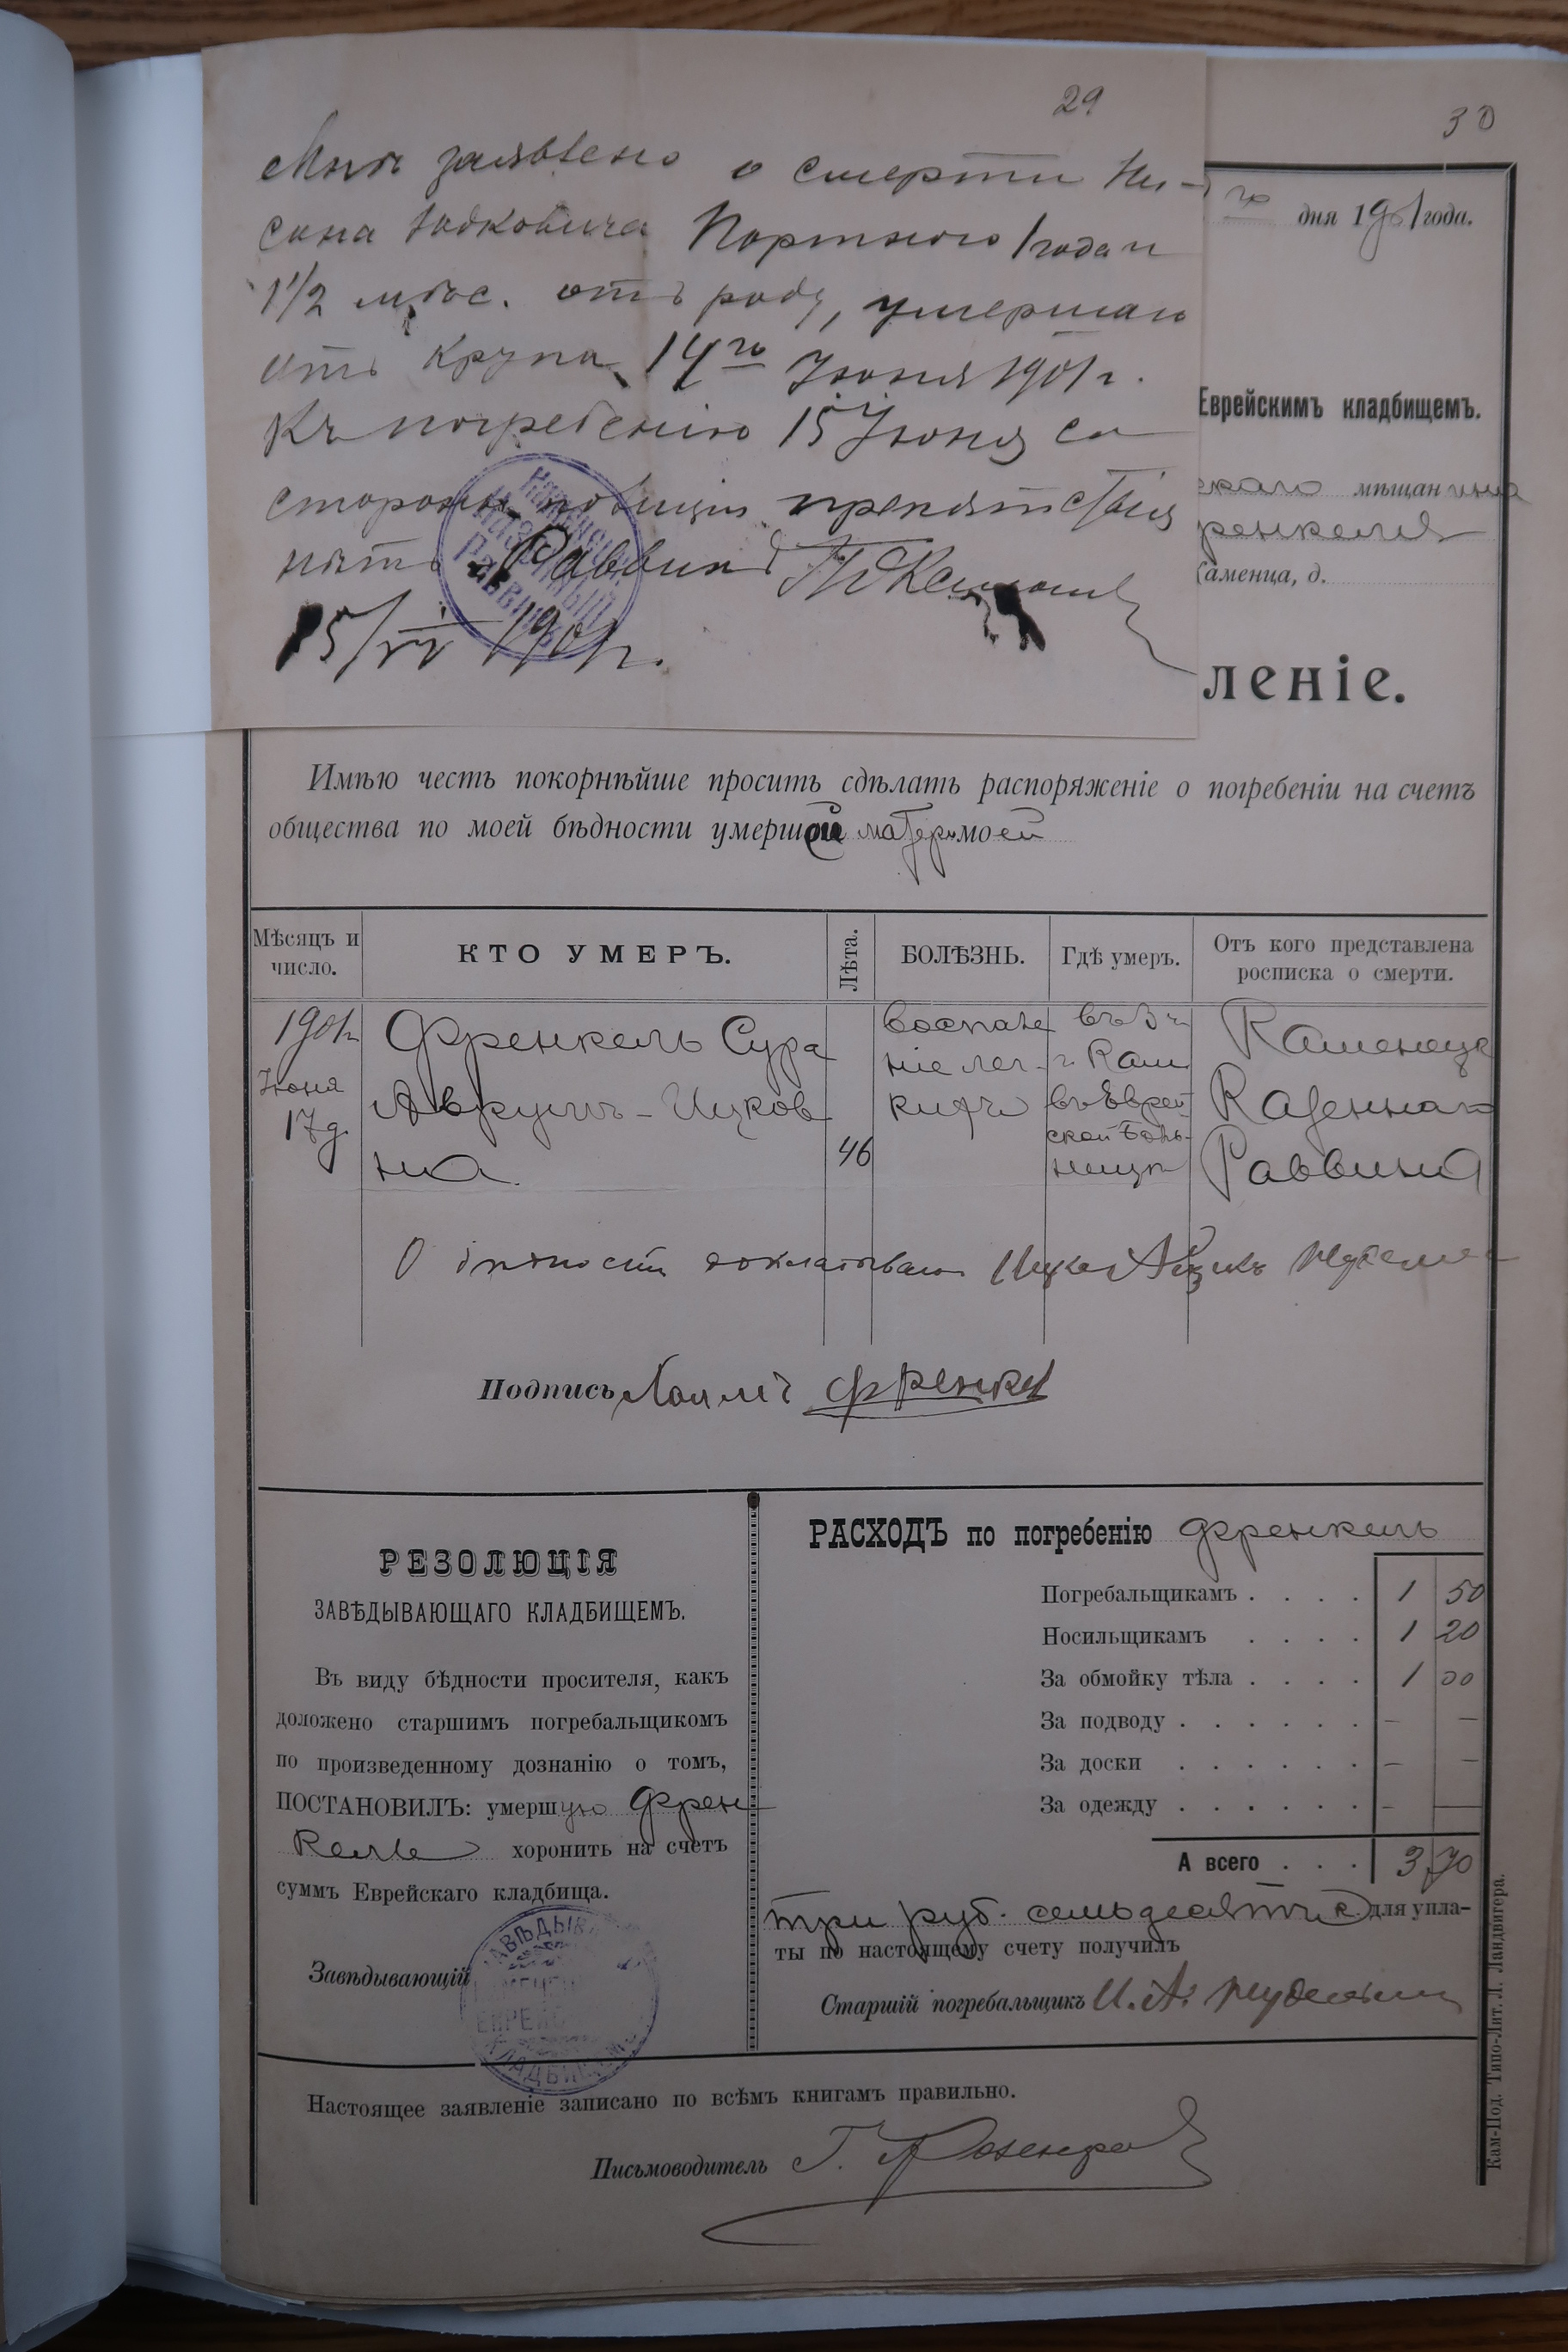 29
30
Мнѣ заявлено о смерти Ни-
сона Іодковича Портного 1 года и
1 1/2 мѣс. отъ роду, умершаго
отъ крупа 14го Іюня 1901 г.
Къ погребенію 15 Іюня со
стороны полиціи препятствія
нѣтъ Раввинъ
15/VI 1901 г.
го дня 1901 года.
Еврейскимъ кладбищемъ.
скаго мѣщанина
ренкеля
Каменца, д.
леніе.
Имѣю честь покорнѣйше просить сдѣлать распоряженіе о погребеніи на счетъ
общества по моей бѣдности умершей матери моей
Мѣсяцъ и число.
КТО УМЕРЪ.
Лѣта.
БОЛѢЗНЬ.
Гдѣ умеръ.
Отъ кого представлена росписка о смерти.
1901 г.
Іюня
17 д.
Френкель Сура
Аврумъ-Ицков
на
46
Воспале
ніе лег-
кихъ
въ
г. Кам
въ Еврей
ской Боль-
ницѣ
Каменецк
Казеннаго
Раввина
О бѣдности докладываю Ицко
Подпись Хаимъ Френкел
РЕЗОЛЮЦІЯ
ЗАВѢДЫВАЮЩАГО КЛАДБИЩЕМЪ.
Въ виду бѣдности просителя, какъ
доложено старшимъ погребальщикомъ
по произведенному дознанію о томъ,
ПОСТАНОВИЛЪ: умершую Френ
кель хоронить на счетъ
суммъ Еврейскаго кладбища.
Завѣдывающій
РАСХОДЪ по погребенію Френкель
Погребальщикамъ . . . . 1 50
Носильщикамъ . . . . 1 20
За обмойку тѣла . . . . 1 00
За подводу . . . . . . — —
За доски . . . . . . — —
За одежду . . . . . . — —
А всего . . . 3 70
три руб. семьдесятъ к. для упла-
ты по настоящему счету получилъ
Старшій погребальщикъ И. А.
Настоящее заявленіе записано по всѣмъ книгамъ правильно.
Письмоводитель Г.
Кам-Под. Типо-Лит. Л. Ландвигера.